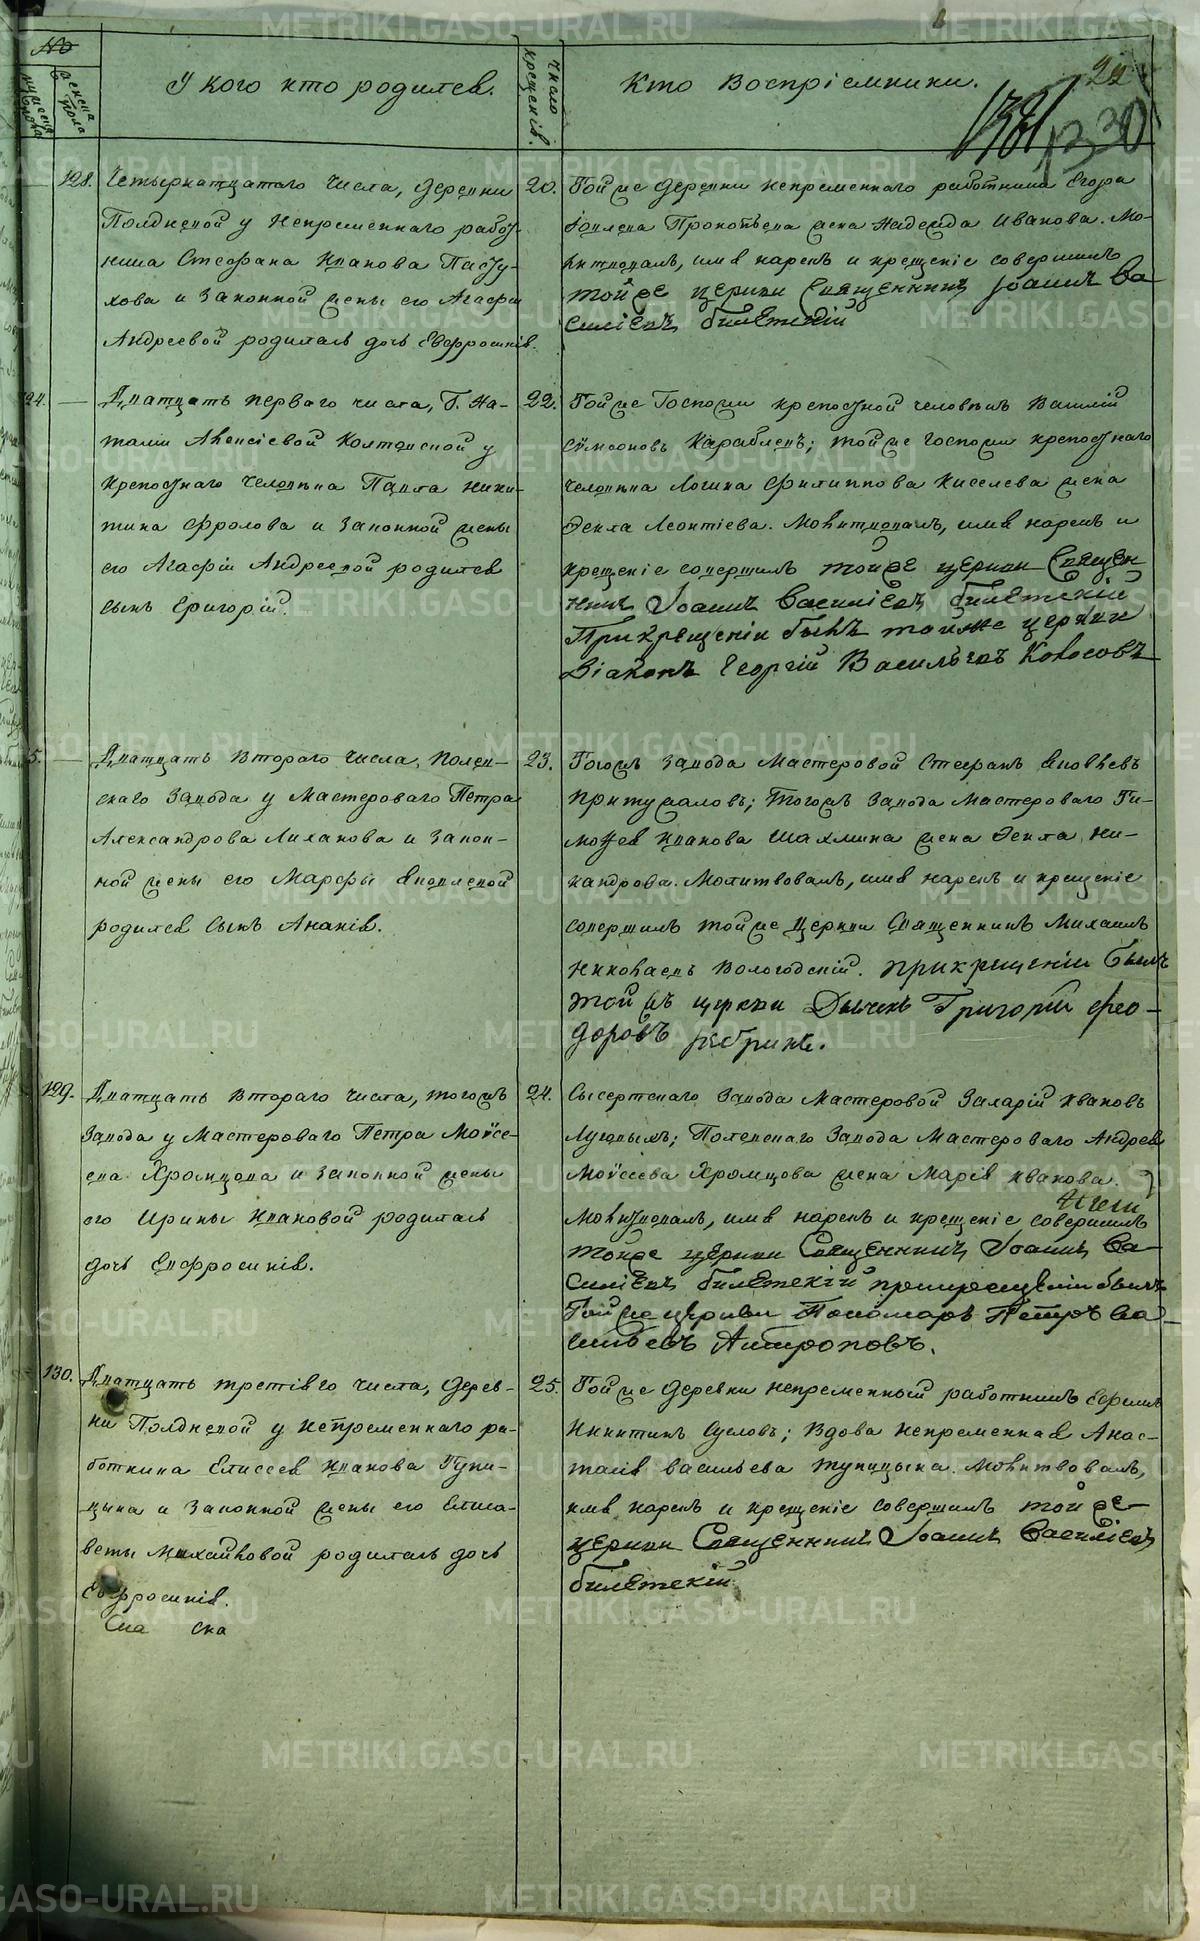 №
мужеска пола
женска пола
У кого кто родился.
Число крещенія.
Кто Воспріемники.
22
1330
128.
Четырнатцатаго числа, деревни
Полдневой у Непременнаго работ-
ника Стефана Иванова Пасту-
хова и законной жены его Агафьи
Андреевой родилась дочь Евфросинія.
20.
Той же деревни непременнаго работника Егора
Прокопьева жена Надежда Иванова. Мо-
литвовалъ, имя нарекъ и крещеніе совершилъ
той же церкви Священникъ Іоаннъ Ва-
силіевъ Билетскій
24.
Дватцать перваго числа, Г. На-
таліи Алексіевой Колтовской у
крепостнаго человека Павла Ники-
тина Фролова и законной жены
его Агафіи Андреевой родился
сынъ Григорій.
22.
Той же Госпожи крепостной человекъ Василій
Сумеоновъ Караблевъ; той же госпожи крепостнаго
человека Логина Филиппова Киселева жена
Фекла Леонтіева. Молитвовалъ, имя нарекъ и
крещеніе совершилъ той же церкви Священ-
никъ Іоаннъ Василіевъ Билетскій
При крещеніи былъ тойже церкви
Діаконъ Георгій Васильевъ Колосовъ
5.
Дватцать втораго числа, Полев-
скаго завода у Мастероваго Петра
Александрова Лиханова и закон-
ной жены его Марфы Яковлевой
родился сынъ Ананія.
23.
Тогожъ завода Мастеровой Стефанъ Яковлевъ
Притужаловъ; Тогожъ завода Мастероваго Ти-
мофея Иванова Шахмина жена Фекла Ни-
кандрова. Молитвовалъ, имя нарекъ и крещеніе
совершилъ той же Церкви Священникъ Михаилъ
Николаевъ Вологодскій. при крещеніи былъ
той жъ церкви Дьячекъ Григорій Фео-
доровъ
129.
Дватцать втораго числа, тогожъ
завода у Мастероваго Петра Моѵсе-
ева Хромцова и законной жены
его Ирины Ивановой родилась
дочь Евфросинія.
24.
Сысертскаго завода Мастеровой Захарій Ивановъ
Полевскаго Завода Мастероваго Андрея
Моѵсеева Хромцова жена Марія Иванова.
Молитвовалъ, имя нарекъ и крещеніе совершилъ
тойже церкви Священникъ Іоаннъ Ва-
силіевъ Билетскій при крещеніи былъ
Той же церкви Пономарь Петръ Ва-
сильевъ Антроповъ.
130.
Дватцать третіяго числа, дерев-
ни Полдневой у Непременнаго ра-
ботника Елисея Иванова Тупи-
цына и законной жены его Елиса-
веты Михайловой родилась дочь
Евфросинія.
25.
Той же деревни непременный работникъ Ефимъ
Никитинъ Сусловъ; вдова непременная Анас-
тасія Васильева Тупицына. Молитвовалъ,
имя нарекъ и крещеніе совершилъ той же
церкви Священникъ Іоаннъ Василіевъ
Билетскій
METRIKI.GASO-URAL.RU